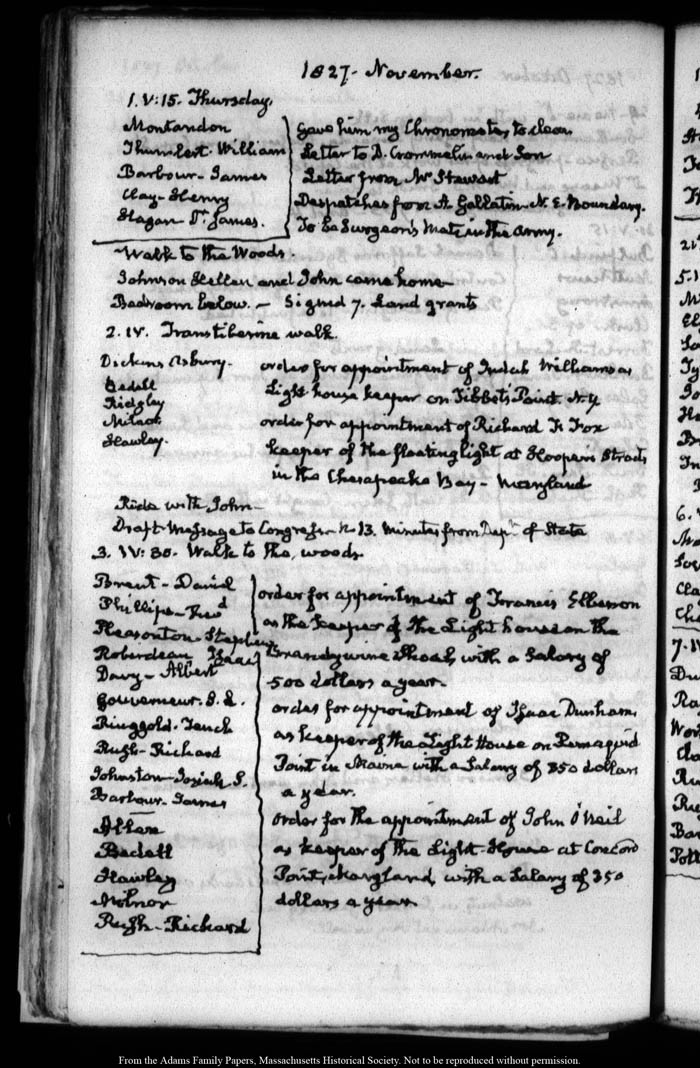 1827. November.
1. V:15. Thursday.
Montandon
Gave him my Chronometer to clean
Thumlert. William
Letter to D. Crommelin and Son
Barbour. James
Letter from Mr Stewart
Clay. Henry
Despatches from A. Gallatin N. E. Boundary.
Hagan Dr. James.
To be Surgeon's Mate in the Army.
Walk to the Woods.
Johnson Hellen and John came home
Bedroom below. — Signed 7. Land grants
2. IV. Transtiberine walk.
Dickins Asbury.
order for appointment of Judah Williams as
Bedell
Light house keeper on Tibbets Point N.Y
Ridgley
Milnor
order for appointment of Richard Fox
Hawley.
keeper of the floating light at Hoopers Straits
in the Chesapeake Bay — Maryland
Ride with John —
Draft Message to Congress 13. Minutes from Dept. of State
3. IV:30. Walk to the woods
Brent - David
order for appointment of Francis
Phillips
as the keeper of the Light house on the
Pleasonton - Stephen
Roberdeau Isaac
Brandywine Shoal, with a Salary of
Davy - Albert
500 dollars a year.
Gouverneur. S. L.
order for appointment of Isaac Dunham,
Ringgold. Tench
as keeper of the Light House on Pemaquid
Rush - Richard
Point in Maine with a Salary of 350 dollars
Johnston - Josiah S.
a year.
Barbour. James
order for the appointment of John O'Neil
Allen
Bedell
as keeper of the Light-House at Concord
Hawley
Point, Maryland, with a Salary of 350
Milnor
dollars a year
Rush - Richard
From the Adams Family Papers, Massachusetts Historical Society. Not to be reproduced without permission.